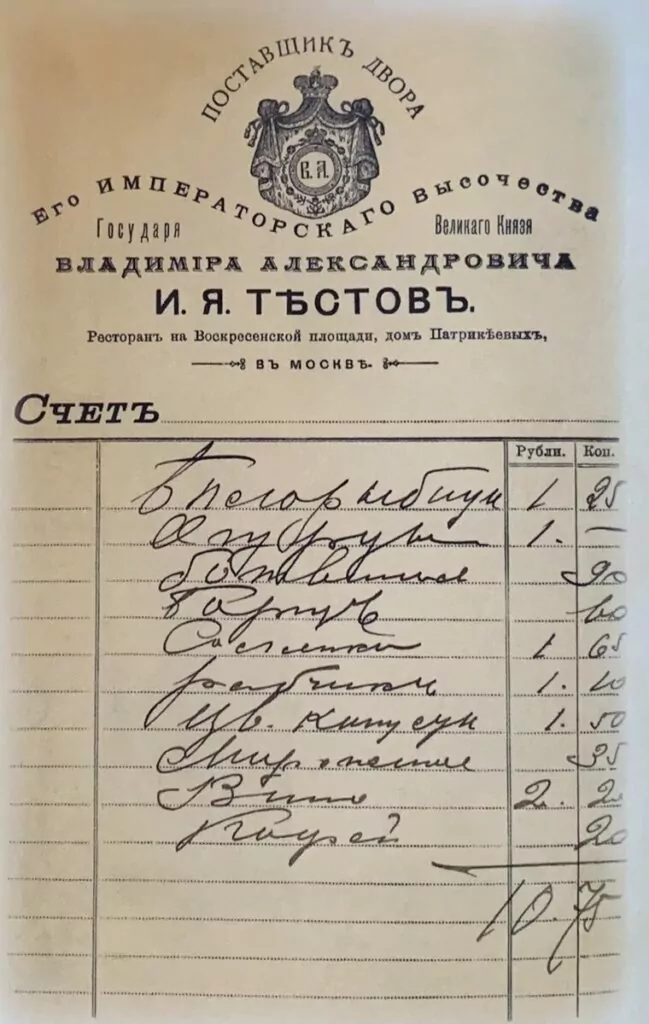 ПОСТАВЩИКЪ ДВОРА
В.А.
ЕГО ИМПЕРАТОРСКАГО ВЫСОЧЕСТВА
Государя Великаго Князя
ВЛАДИМІРА АЛЕКСАНДРОВИЧА
И. Я. ТѢСТОВЪ.
Ресторанъ на Воскресенской площади, домъ Патрикѣевыхъ,
ВЪ МОСКВѢ.
СЧЕТЪ
Рубли. Коп.
1 25
Огурцы 1. —
ботвинья 90
60
Селянка 1 65
рябчикъ 1. 10
Цв. капусты 1. 50
Мороженое 35
Вино 2. 20
Кофей 20
10.75